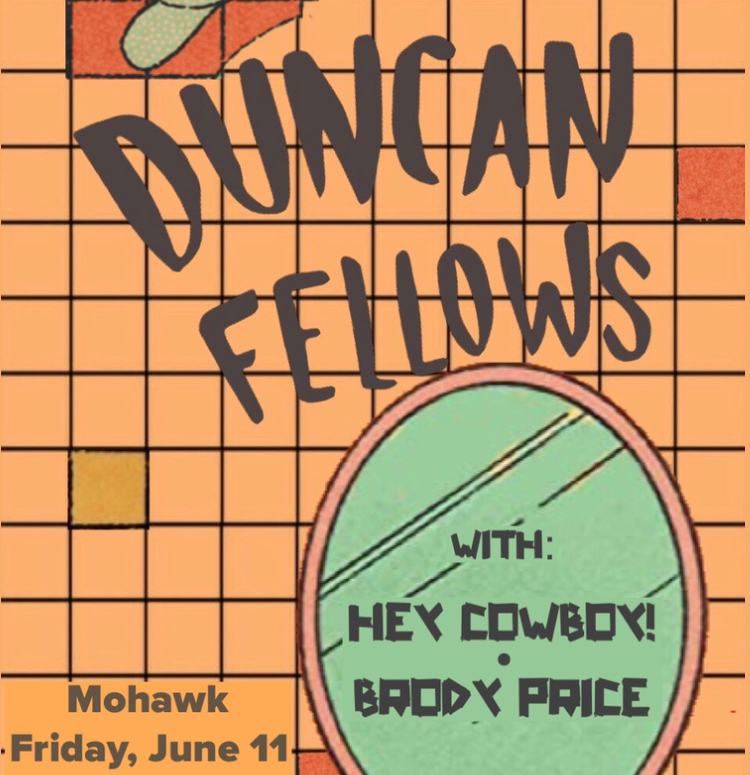 DUNCAN
FELLOWS
WITH:
HEY COWBOY!
•
BRODY PRICE
Mohawk
Friday, June 11